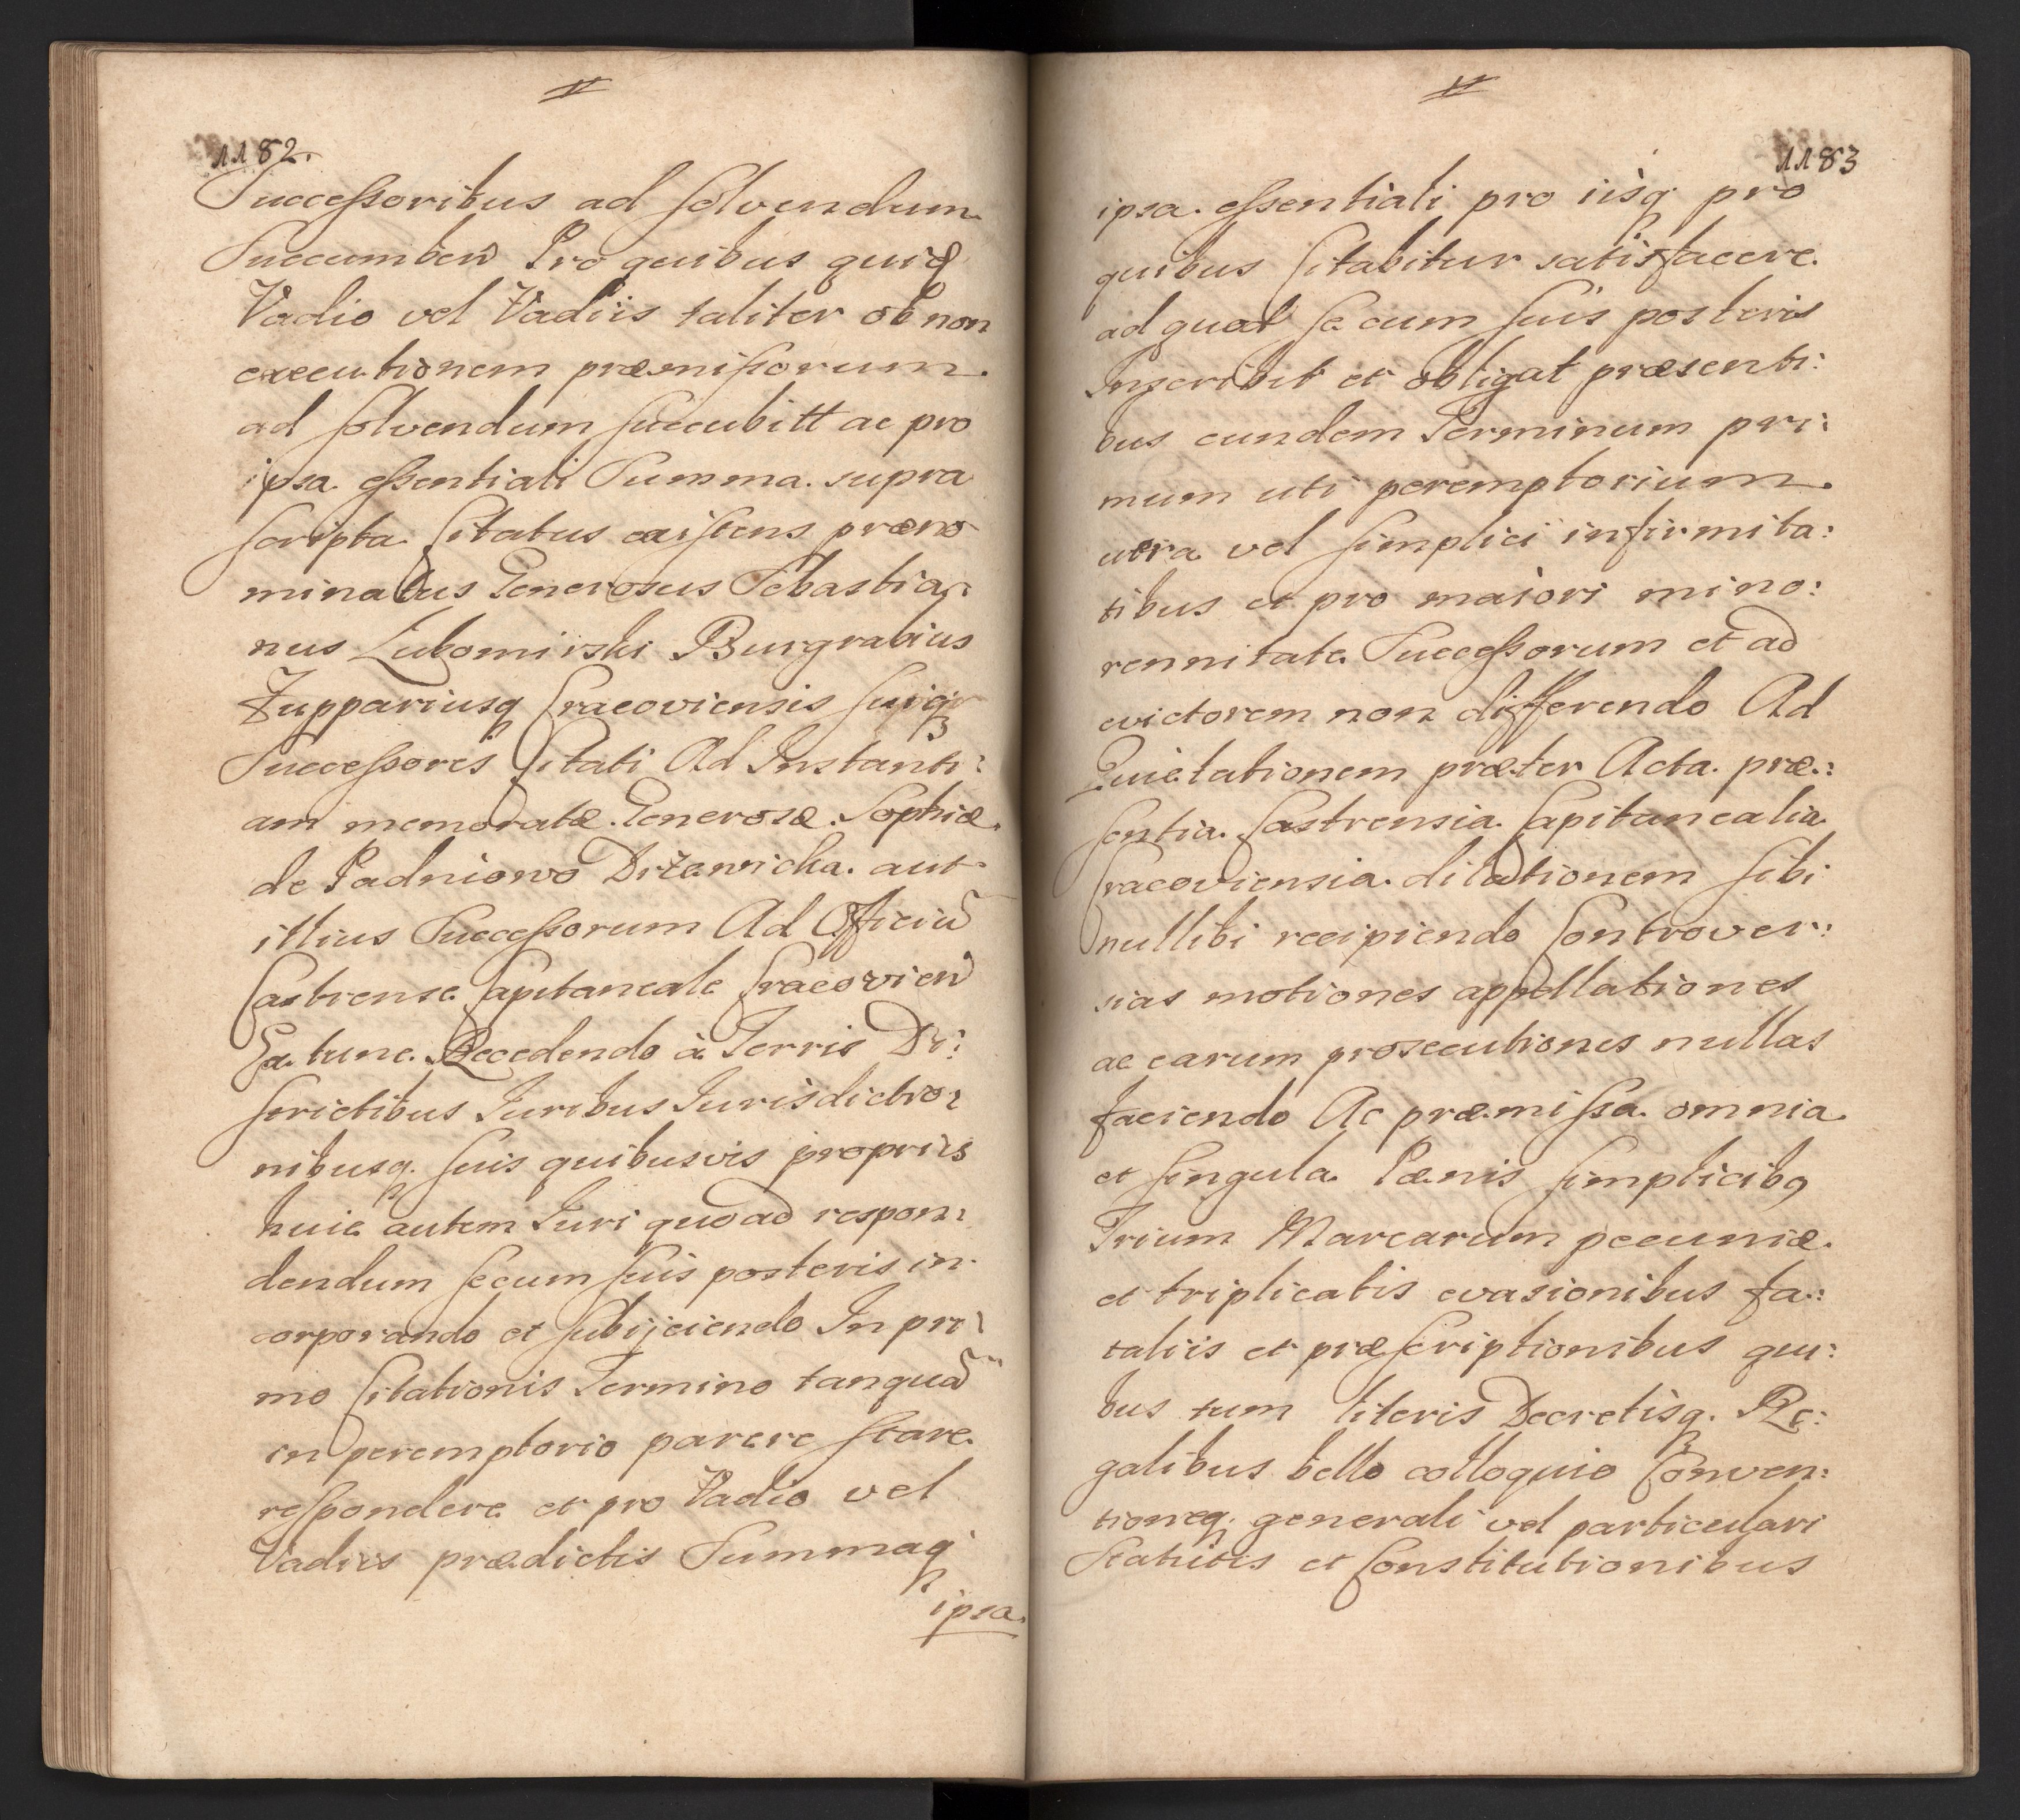 1182.
Successoribus ad solvendum
Succumben Pro quibus quid
Vadio vel Vadiis taliter ob non
executionem præmissorum
ad solvendum succubitt ac pro
ipsa essentiali Summa supra
scripta Citatus existens præno
minatus Generosus Sebastia:
nus Lubomirski Burgrabius
Zuppariusq Cracoviensis suiq
Successores Citati Ad Instanti:
am memoratæ Generosæ Sophiæ
de Padniowo Drzewicka aut
illius Successorum Ad Officiu
Castrense Capitaneale Cracovien
Ex tunc Recedendo à Terris Di:
strictibus Iuribus Iurisdictio:
nibusq. suis quibusvis propriis
huic autem Iuri quoad respon:
dendum se cum suis posteris in
corporando et subijciendo In pri:
mo Citationis Termino tanqua
in peremptorio parere stare
respondere et pro Vadio vel
Vadiis prædictis Summaq
ipsa
1183
ipsa essentiali pro iisq pro
quibus Citabitur satisfacere
ad quod se cum suis posteris
Inscribit et obligat præsenti:
bus eundem Terminum pri:
mum uti peremptorium
vera vel simplici infirmita:
tibus et pro maiori mino:
rennitate Successorum et ad
evictorem non differendo Ad
Quietationem præter Acta præ:
sentia Castrensia Capitanealia
Cracoviensia dilationem sibi
nullibi recipiendo Controver:
sias motiones appellationes
ac earum prosecutiones nullas
faciendo Ac præmissa omnia
et singula Pœnis simplicibq
Trium Marcarum pecuniæ
et triplicatis evasionibus fa:
taliis et præscriptionibus qui:
bus tum literis Decretisq. Re:
galibus bello colloquio Conven:
tioneq. generali vel particulari
Statutis et Constitutionibus